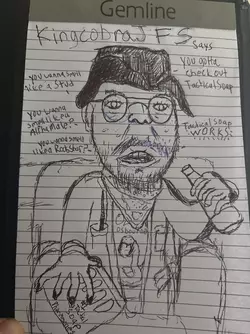 Gemline
KingcobraJFS
says
you wanna smell
like a stud
you gotta
check out
Tactical Soap
you wanna
smell like a
Alpha Male?
you wanna smell
like a Rockstar?
Tactical Soap
WORKS!